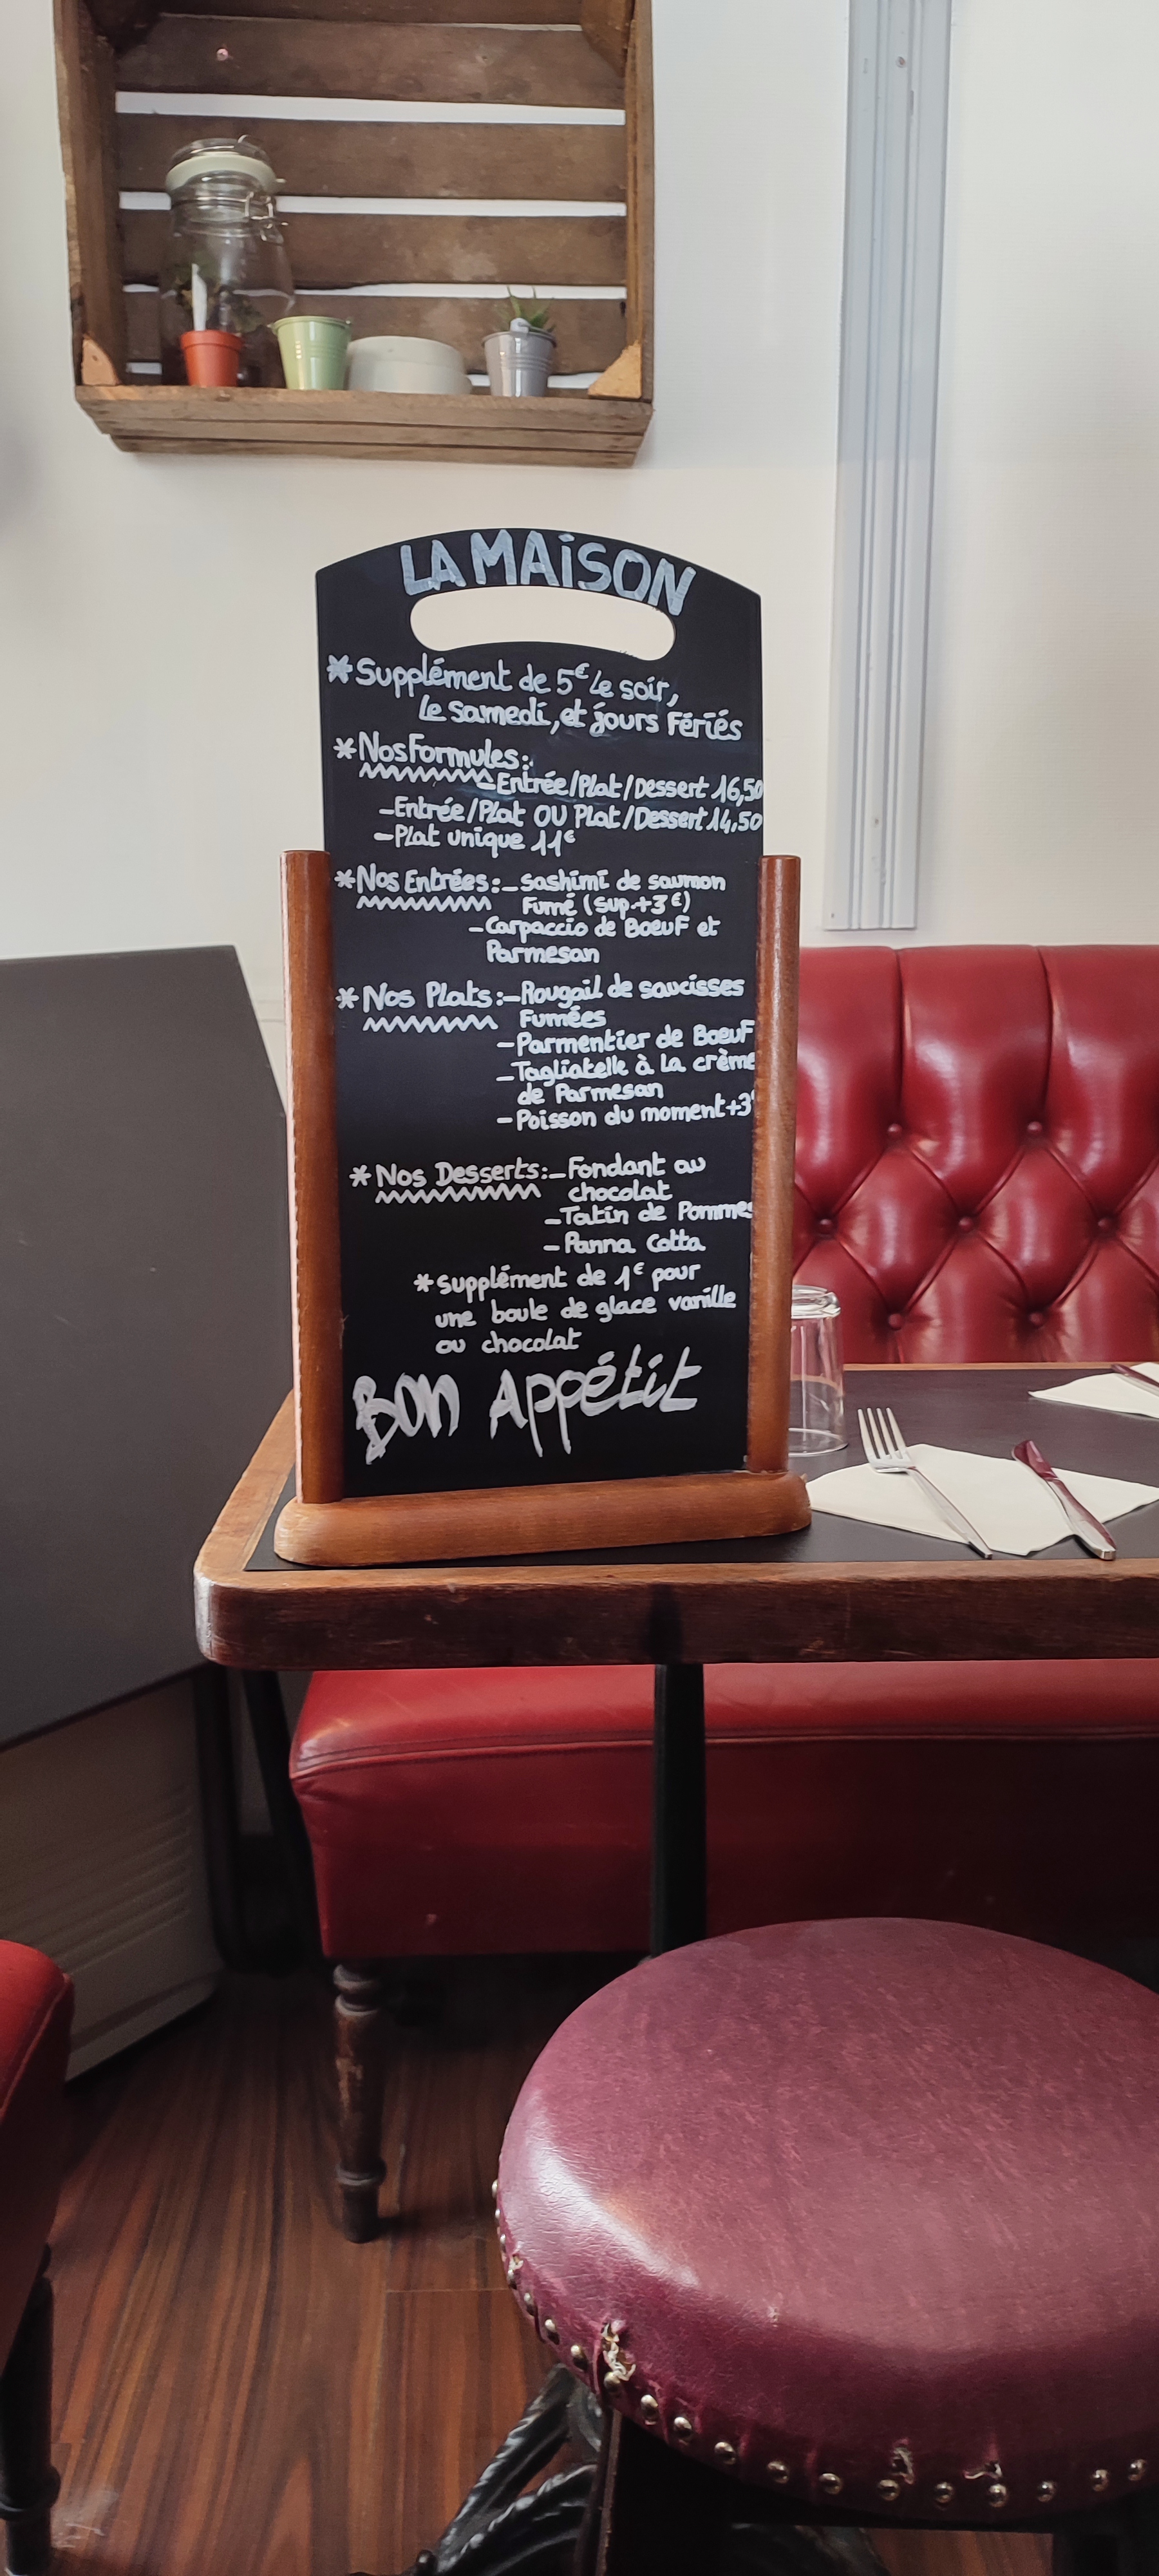 LA MAiSON
*Supplément de 5€ le soir,
le samedi, et jours Fériés
*Nos Formules:
-Entrée/Plat/Dessert 16,50
-Entrée/Plat OU Plat/Dessert 14,50
-Plat unique 11€
*Nos Entrées:-Sashimi de saumon
Fumé (sup.+3€)
-Carpaccio de BoeuF et
Parmesan
*Nos Plats:-Rougail de saucisses
Fumées
-Parmentier de BoeuF
-Tagliatelle à la crème
de Parmesan
-Poisson du moment+3€
*Nos Desserts:-Fondant au
chocolat
-Tatin de Pommes
-Panna Cotta
*Supplément de 1€ pour
une boule de glace vanille
ou chocolat
BON Appétit